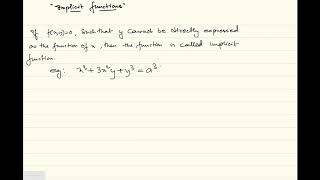 "Implicit functions"
If f(x,y)=0, such that y cannot be directly expressed
as the function of x, then the function is called implicit
function.
eg: x³ + 3x²y + y³ = a³.